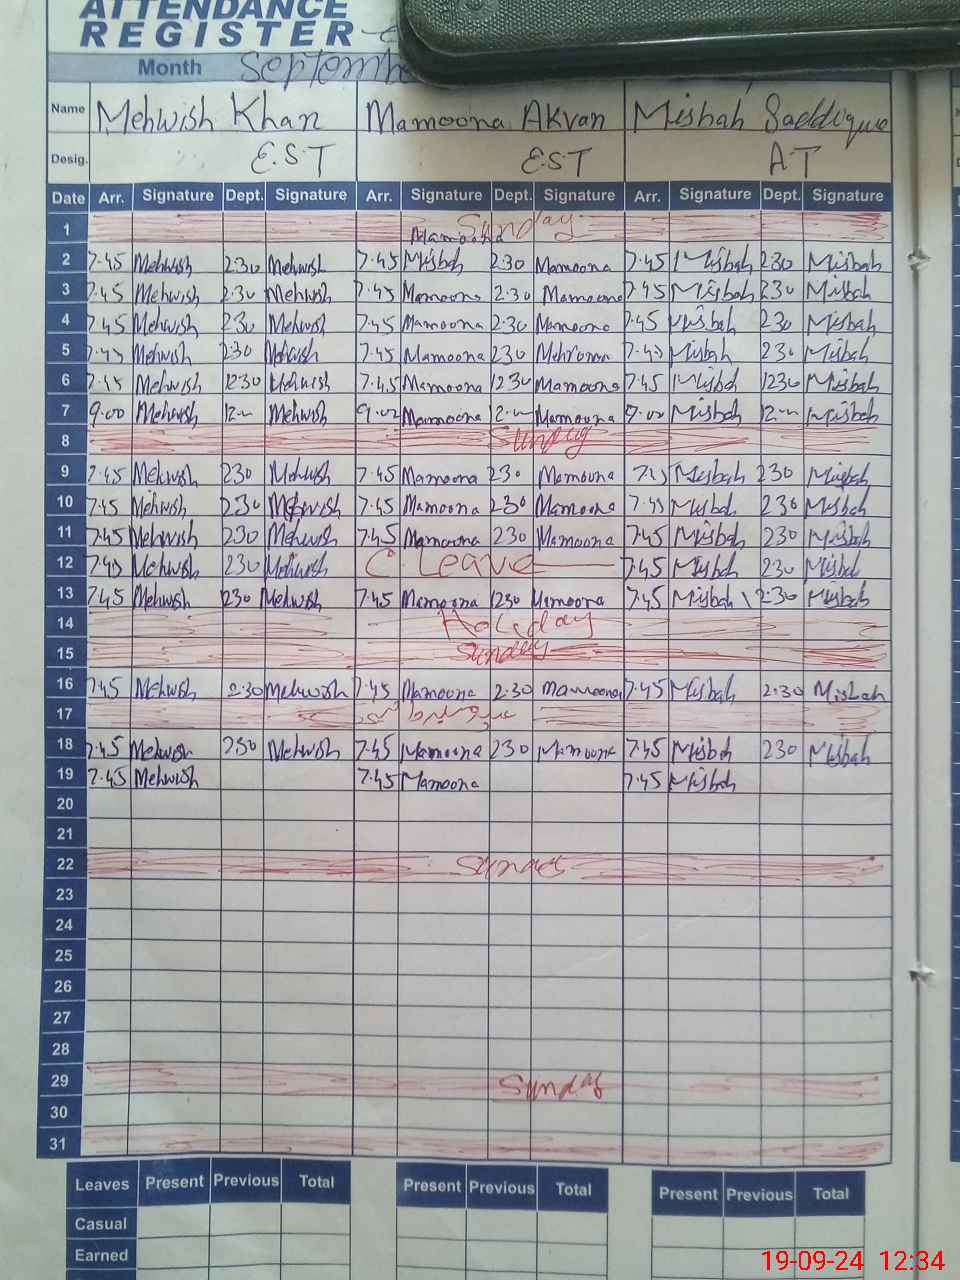 ATTENDANCE
REGISTER
Month September
Name Mehwish Khan Mamoona Akvan Misbah Saddique
Desig. E.S.T E.S.T A.T
Date Arr. Signature Dept. Signature Arr. Signature Dept. Signature Arr. Signature Dept. Signature
1 Sunday
Mamoona
2 7.45 Mehwish 2.30 Mehwish 7.45 Misbah 2.30 Mamoona 7.45 Misbah 2.30 Misbah
3 7.45 Mehwish 2.30 Mehwish 7.45 Mamoona 2.30 Mamoona 7.45 Misbah 2.30 Misbah
4 7.45 Mehwish 2.30 Mehwish 7.45 Mamoona 2.30 Mamoona 7.45 Misbah 2.30 Misbah
5 7.45 Mehwish 2.30 Mehwish 7.45 Mamoona 2.30 7.45 Misbah 2.30 Misbah
6 7.45 Mehwish 12.30 Mehwish 7.45 Mamoona 12.30 Mamoona 7.45 Misbah 12.30 Misbah
7 9.00 Mehwish 12.00 Mehwish 9.00 Mamoona 12.00 Mamoona 9.00 Misbah 12.00 Misbah
8 Sunday
9 7.45 Mehwish 2.30 Mehwish 7.45 Mamoona 2.30 Mamoona Misbah 2.30 Misbah
10 7.45 Mehwish 2.30 Mehwish 7.45 Mamoona 2.30 Mamoona 7.45 Misbah 2.30 Misbah
11 7.45 Mehwish 2.30 Mehwish 7.45 Mamoona 2.30 Mamoona 7.45 Misbah 2.30 Misbah
12 7.45 Mehwish 2.30 Mehwish C. Leave 7.45 Misbah 2.30 Misbah
13 7.45 Mehwish 12.30 Mehwish 7.45 Mamoona 12.30 Mamoona 7.45 Misbah 12.30 Misbah
14 Holiday
15 Sunday
16 7.45 Mehwish 2.30 Mehwish 7.45 Mamoona 2.30 Mamoona 7.45 Misbah 2.30 Misbah
17
18 7.45 Mehwish 2.30 Mehwish 7.45 Mamoona 2.30 Mamoona 7.45 Misbah 2.30 Misbah
19 7.45 Mehwish 7.45 Mamoona 7.45 Misbah
20
21
22 Sunday
23
24
25
26
27
28
29 Sunday
30
31
Leaves Present Previous Total Present Previous Total Present Previous Total
Casual
Earned
19-09-24 12:34